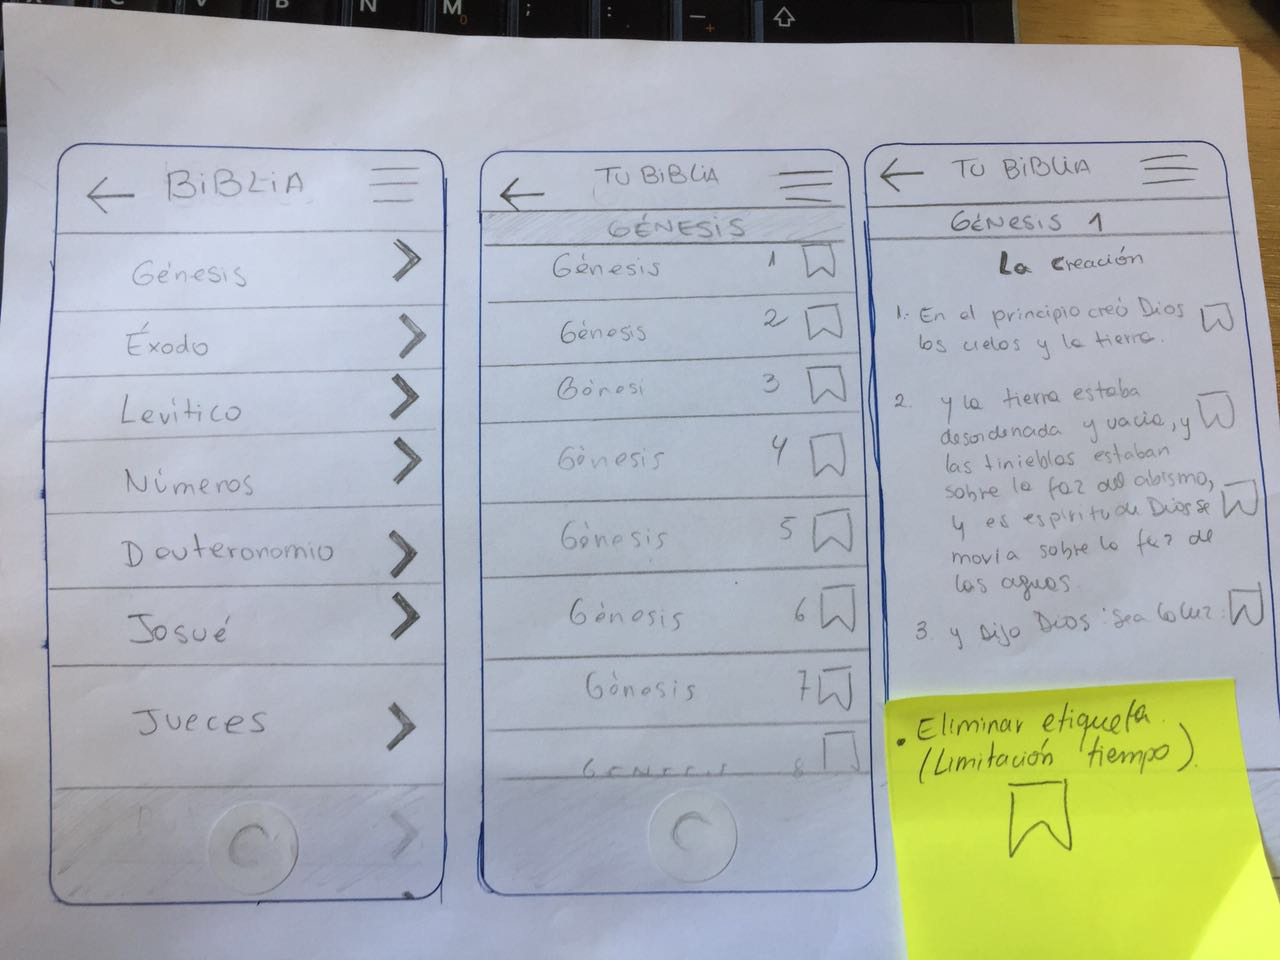 BiBLiA
Génesis
Éxodo
Levítico
Números
Deuteronomio
Josué
Jueces
TU BiBLiA
GÉNESiS
Génesis 1
Génesis 2
Génesi 3
Génesis 4
Génesis 5
Génesis 6
Génesis 7
GENESIS 8
TU BiBLiA
GÉNESiS 1
La Creación
1.- En el principio creó Dios
los cielos y la tierra.
2. y la tierra estaba
desordenada y vacia, y
las tinieblas estaban
sobre la faz del abismo,
y es espiritu de Dios se
movía sobre la faz de
las aguas
3. y Dijo Dios: Sea la luz:
• Eliminar etiqueta.
(Limitación tiempo).
M
B
N
V
C
X
;
:
_